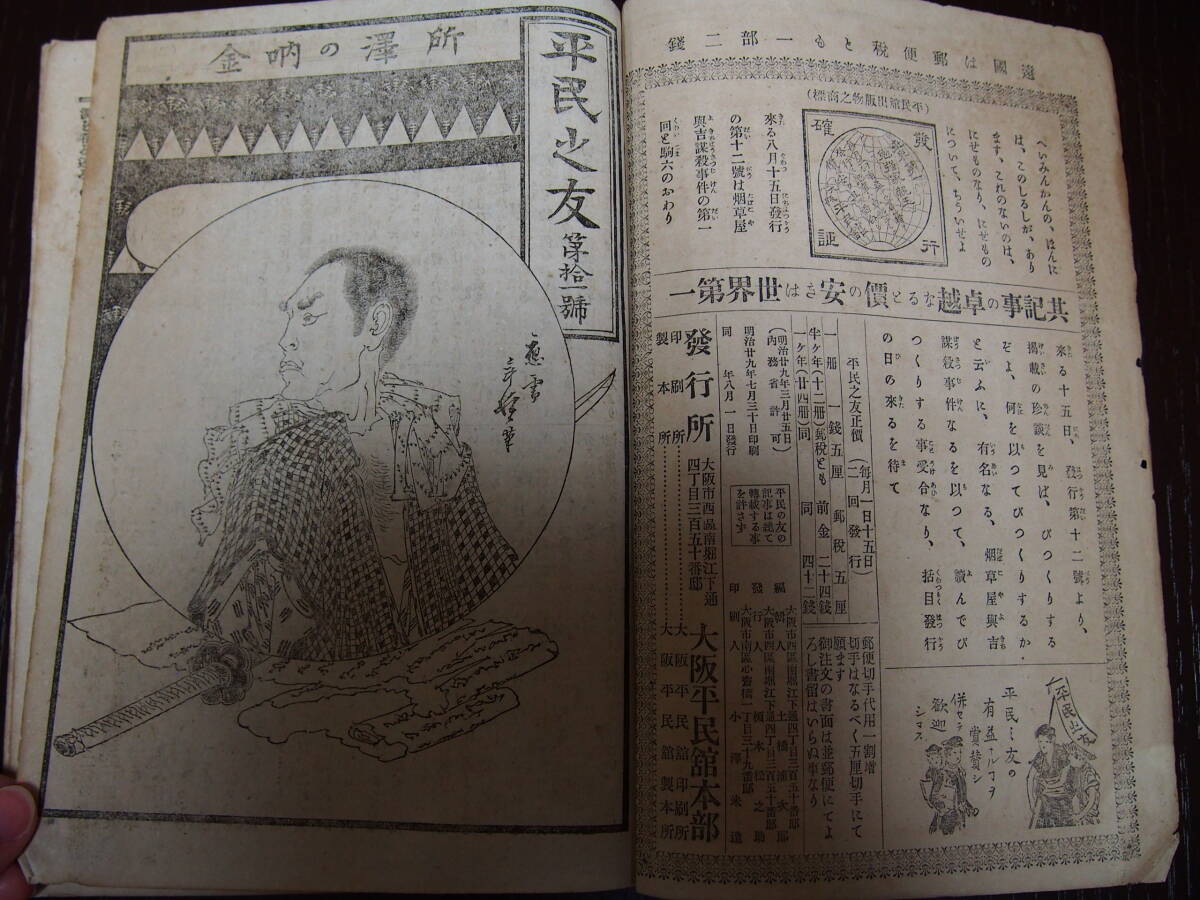 遠國は郵便税とも一部二錢
(平民舘出版物之商標)
發行
確証
へいみんかんの、はんに
は、このしるしが、あり
ます、これのないのは、
にせものなり、にせもの
について、ちういせよ
來る八月十五日發行
の第十二號は烟草屋
與吉謀殺事件の第一
回と駒六のおわり
其記事の卓越なると價の安さは世界第一
來る十五日、發行第十二號より、
掲載の珍談を見ば、びつくりする
ぞよ、何を以つてびつくりするか、
と云ふに、有名なる、烟草屋與吉
謀殺事件なるを以つて、讀んでび
つくりする事受合なり、括目發行
の日の來るを待て
平民之友
平民之友の
有益ナルヿヲ
賞賛シ
併セテ
歡迎
シマス
平民之友正價(毎月一日十五日二回發行)
一册 一錢五厘 郵税五厘
半ケ年(十二册)郵税とも前金二十四錢
一ケ年(廿四册)同 同 四十二錢
郵便切手代用一割増
切手はなるべく五厘切手にて
願ます
御注文の書面は並郵便にてよ
ろし書留はいらぬ事なり
(明治廿九年三月廿五日内務省許可)
明治廿九年七月三十日印刷
同 年八月一日發行
平民の友の
記事は總て
轉載する事
を許さず
大阪市西區南堀江下通四丁目三百五十番邸
編輯人 土橋浦次郎
大阪市西區南堀江下通四丁目三百五十番邸
發行人 榎本松之助
印刷人 小澤米造
發行所 大阪市西區南堀江下通四丁目三百五十番邸 大阪平民舘本部
印刷所 大阪平民舘印刷所
製本所 大阪平民舘製本所
平民之友 第拾一號
所澤の吶金